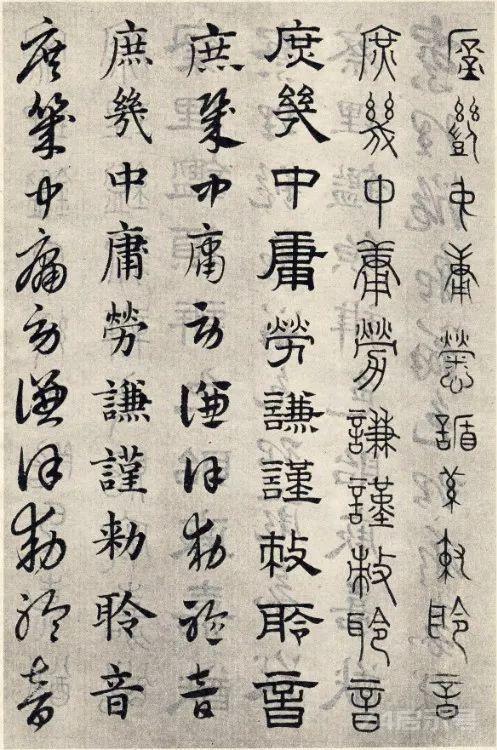 庶幾中庸勞謙謹敕聆音
庶幾中庸勞謙謹敕聆音
庶幾中庸勞謙謹敕聆音
庶幾中庸勞謙謹勅聆音
庶幾中庸勞謙謹勅聆音
庶幾中庸勞謙謹勅聆音